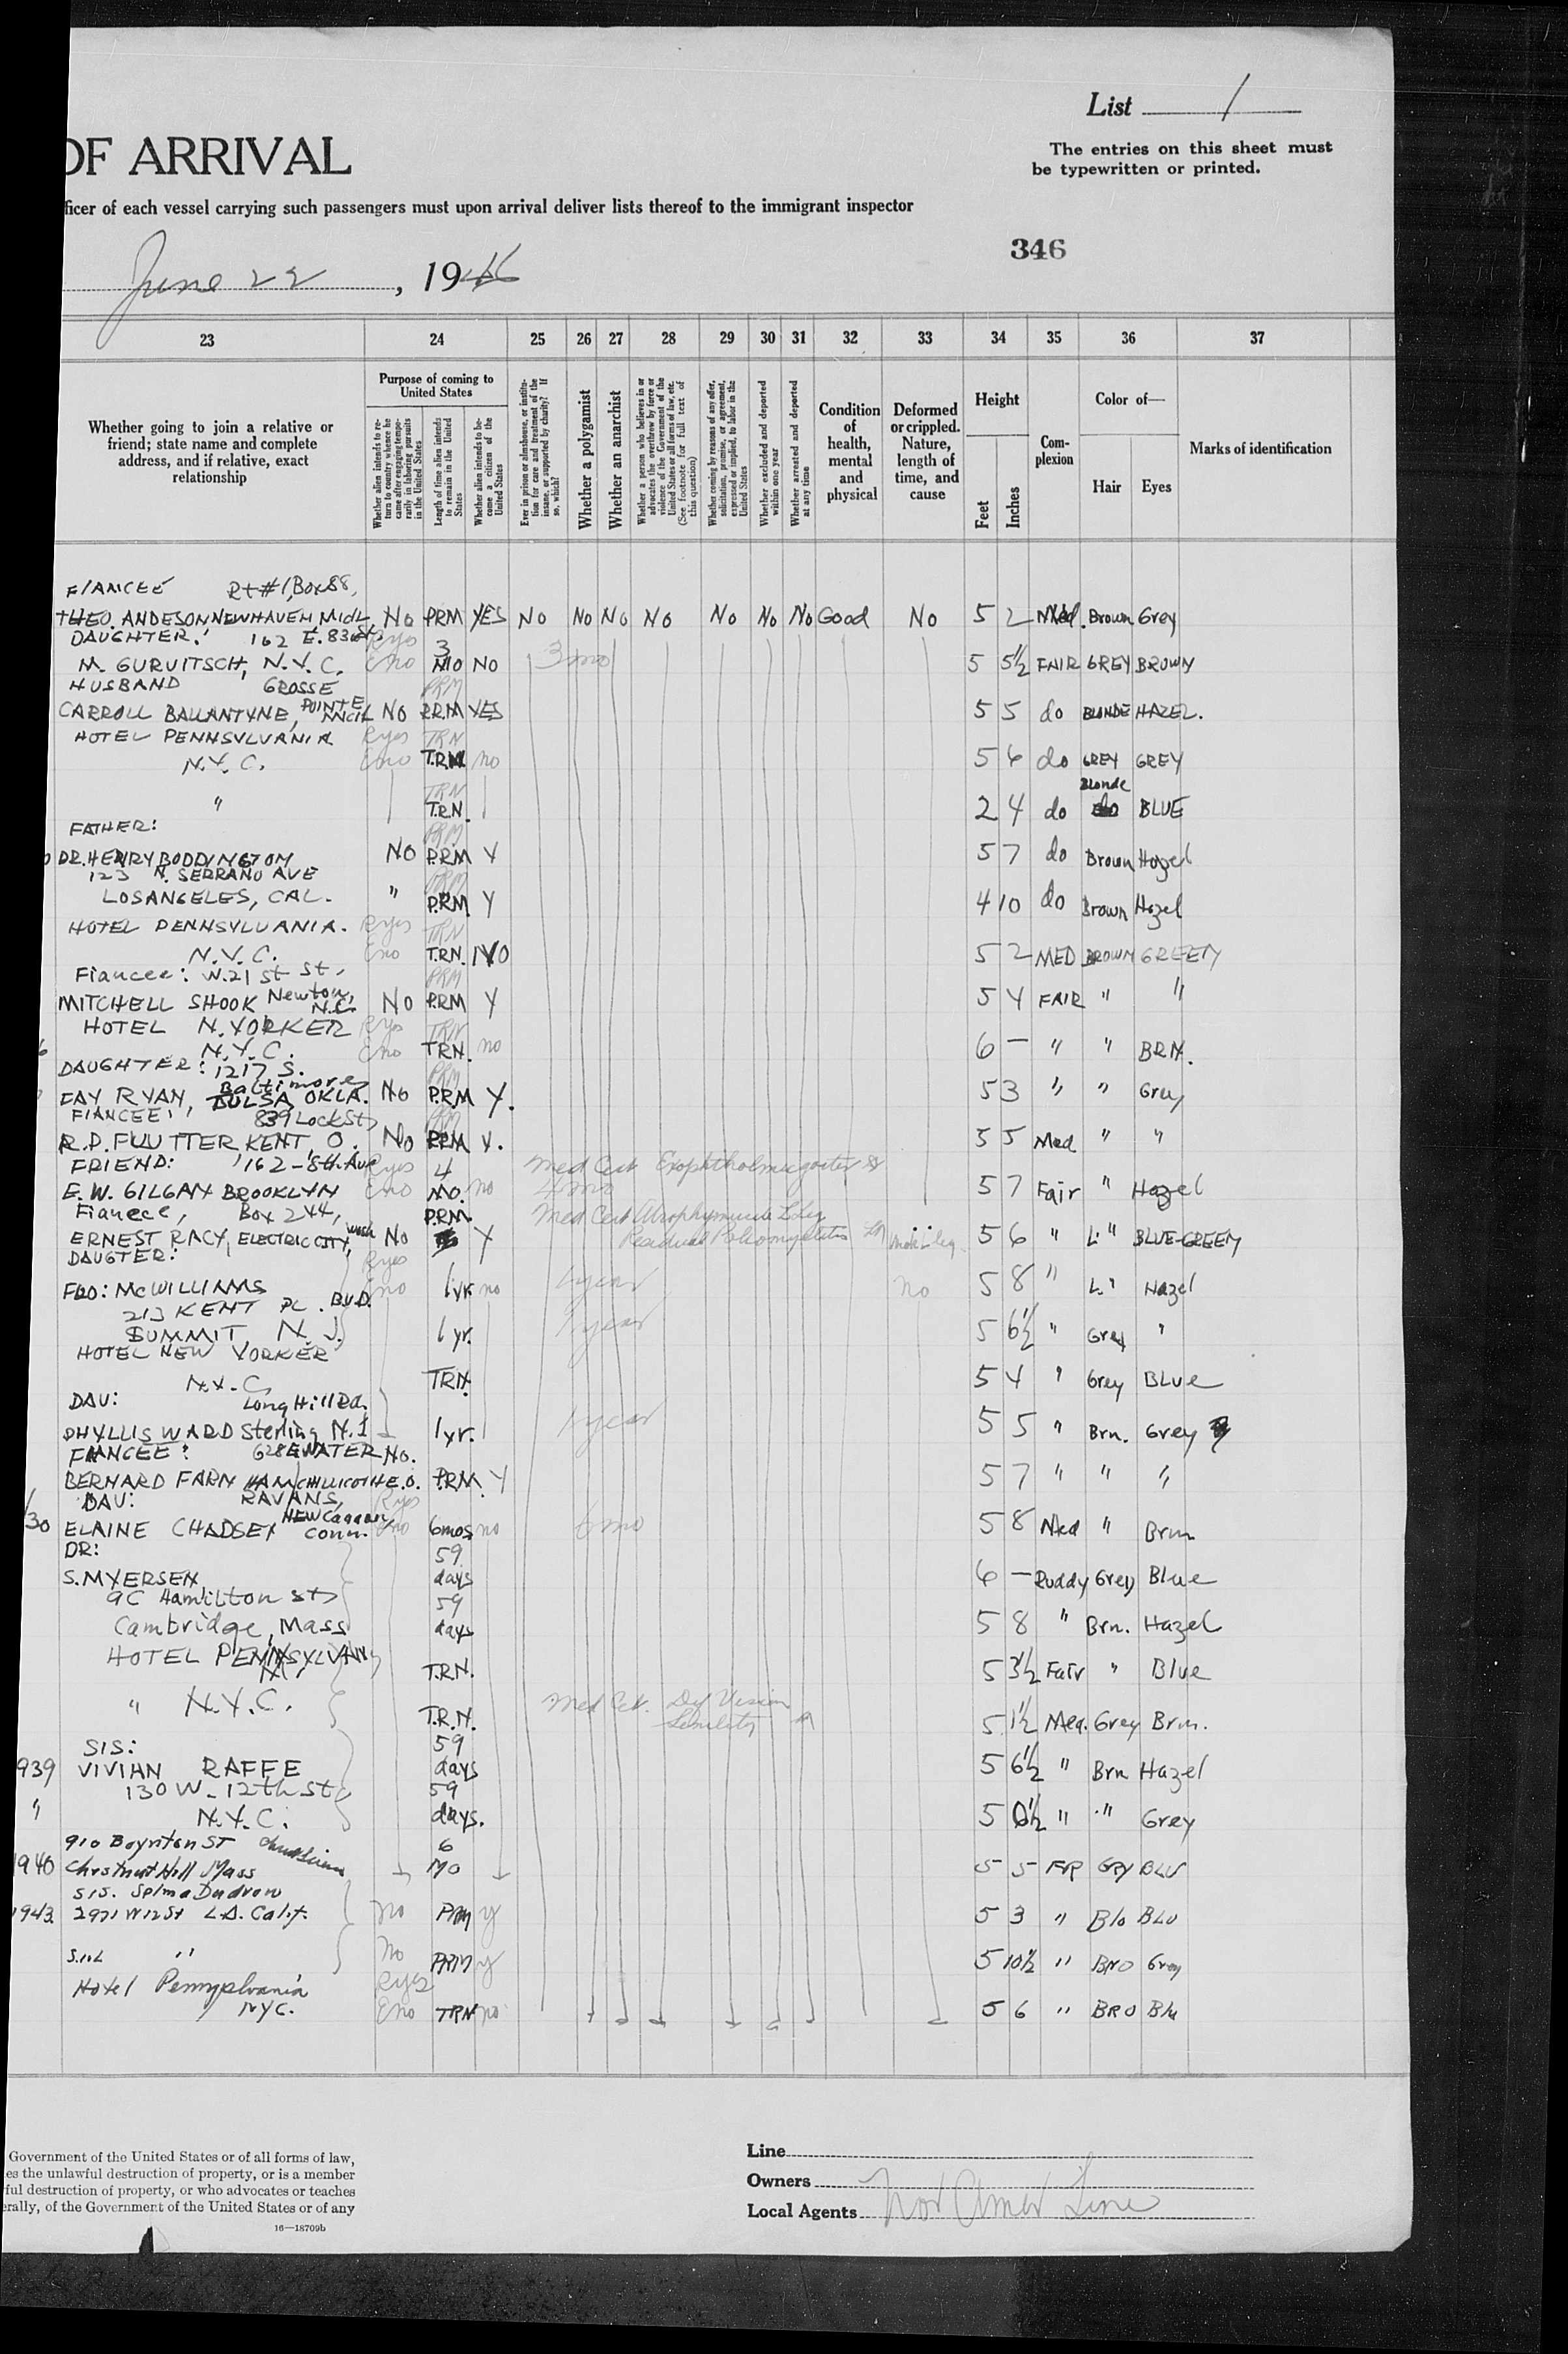 List 1
OF ARRIVAL
The entries on this sheet must
be typewritten or printed.
ficer of each vessel carrying such passengers must upon arrival deliver lists thereof to the immigrant inspector
346
June 22, 1946
23 24 25 26 27 28 29 30 31 32 33 34 35 36 37
Whether going to join a relative or
friend; state name and complete
address, and if relative, exact
relationship
Purpose of coming to
United States
Whether alien intends to re-
turn to country whence he
came after engaging tempo-
rarily in laboring pursuits
in the United States
Length of time alien intends
to remain in the United
States
Whether alien intends to be-
come a citizen of the
United States
Ever in prison or almshouse, or institu-
tion for care and treatment of the
insane, or supported by charity? If
so, which?
Whether a polygamist
Whether an anarchist
Whether a person who believes in or
advocates the overthrow by force or
violence of the Government of the
United States or all forms of law, etc.
(See footnote for full text of
this question)
Whether coming by reasons of any offer,
solicitation, promise, or agreement,
expressed or implied, to labor in the
United States
Whether excluded and deported
within one year
Whether arrested and deported
at any time
Condition
of
health,
mental
and
physical
Deformed
or crippled.
Nature,
length of
time, and
cause
Height
Feet
Inches
Com-
plexion
Color of—
Hair
Eyes
Marks of identification
FIANCEE Rt #1, Box 88,
THEO. ANDESON NEWHAVEN, Mich, No PRM YES No No No No No No No Good No 5 2 Med. Brown Grey
DAUGHTER: 162 E. 83rd St Ryes
M. GURVITSCH, N.Y.C. Eno 3 MO NO 3 mo 5 5½ FAIR GREY BROWN
HUSBAND GROSSE PRM
CARROLL BALLANTYNE, POINTE MICH No P.R.M YES 5 5 do BLONDE HAZEL.
HOTEL PENNSYLVANIA Ryes TRN
N.Y.C. Eno T.R.N. no 5 6 do GREY GREY
" TRN T.R.N. 2 4 do Blonde BLUE
FATHER: PRM
DR. HENRY BODDINGTON No P.RM Y 5 7 do Brown Hazel
123 N. SERRANO AVE
LOSANGELES, CAL. " P.RM Y 4 10 do Brown Hazel
HOTEL PENNSYLVANIA. Ryes TRN
N.Y.C. Eno T.RN. NO 5 2 MED BROWN GREEN
Fiancee: W. 21 st St, PRM
MITCHELL SHOOK Newton, N.C. No P.RM Y 5 4 FAIR " "
HOTEL N. YORKER Ryes TRN
N.Y.C. Eno TRN. no 6 — " " BRN.
DAUGHTER: 1217 S. PRM
FAY RYAN, Baltimore TULSA, OKLA. No P.RM Y. 5 3 " " Grey
FIANCEE: 839 Lock St
KENT, O. No PRM Y. 5 5 Med " "
FRIEND: 162 - 8th Ave Ryes 4 Med Cert
E. W. GILGAN BROOKLYN Eno MO. no 4 mo 5 7 Fair " Hazel
Fiancee, Box 244, P.RM. Med Cert
ERNEST RACY, ELECTRIC CITY, Wash No Y Residual Poliomyelitis 5 6 " L. " BLUE-GREEN
DAUGTER: Ryes
FLO: McWILLIAMS Eno 1 yr no 1 year no 5 8 " L. " Hazel
213 KENT PL. BVD.
SUMMIT, N. J. 1 yr. 1 year 5 6½ " Grey "
HOTEL NEW YORKER
N.Y.C. TRN. 5 4 " Grey BLUE
DAU: Long Hill Rd.
PHYLLIS WARD Sterling N.J 1 yr. 1 year 5 5 " Brn. Grey
FIANCEE: 628 E WATER No.
BERNARD FARNHAM CHILLICOTHE. O. P.RM. Y 5 7 " " "
DAU: Ryes
ELAINE CHADSEY NEW Canaan Conn. Eno 6mos no 6 mo 5 8 Med " Brn
DR: 59
S. MYERSEN days 6 — Ruddy Grey Blue
9C Hamilton St 59
Cambridge, Mass days 5 8 " Brn. Hazel
HOTEL PENNSYLVAN T.R.N. 5 3½ Fair " Blue
" N.Y.C. T.R.N. Med Cert. Def Vision Senility 5 1½ Med. Grey Brn.
SIS: 59
939 VIVIAN RAFFE days 5 6½ " Brn Hazel
130 W. 12th St 59
" N.Y.C. days. 5 6½ " " Grey
910 Boynton ST 6
1940 Chestnut Hill Mass Mo 5 5 FAR GRY BLU
SIS. Selma Dudrow
1943. 2971 W 12 St L.A. Calif. no PRM y 5 3 " Blo BLU
S.i.L " No PRM y 5 10½ " BRO Grey
Hotel Pennsylvania Ryes
NYC. Eno TRN no 5 6 " BRO Blu
Government of the United States or of all forms of law,
es the unlawful destruction of property, or is a member
ful destruction of property, or who advocates or teaches
erally, of the Government of the United States or of any
16—18709b
Line
Owners
Local Agents Nor Amer Line